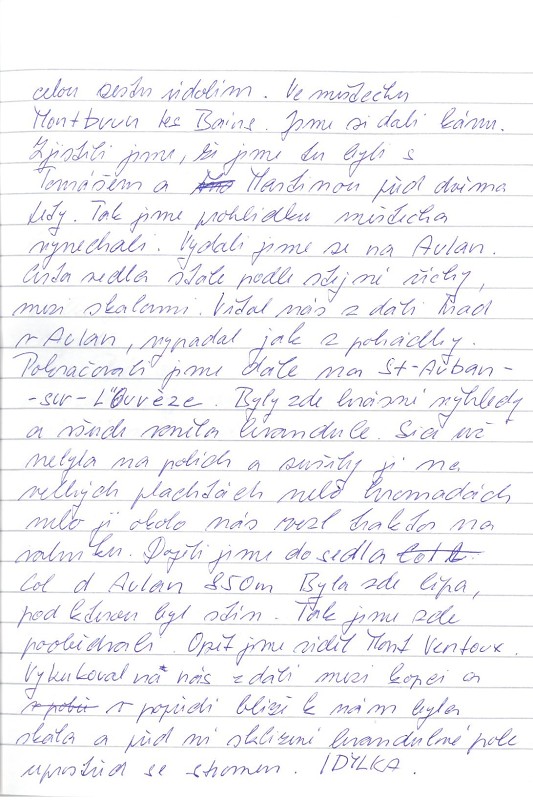 celou cestu viděli m. Ve městečku
Montbrun les Bains. Jsme si dali kávu.
Zjistili jsme, že jsme tu byli s
Tomášem a Martinou před dvěma
lety. Tak jsme prohlídku městečka
vynechali. Vydali jsme se na Aulan.
Cesta vedla stále podle stejné říčky,
mezi skalami. Vítal nás z dáli hrad
v Aulan, vypadal jak z pohádky.
Pokračovali jsme dále na St-Auban-
-sur-L'Ouvèze. Byly zde krásné výhledy
a všude voněla levandule. Sice už
nebyla na polích a sušily ji na
velkých plachtách nebo hromadách
nebo ji okolo nás vezl traktor na
valníku. Dojeli jsme do sedla Col
Col d Aulan 850m Byla zde lípa,
pod kterou byl stín. Tak jsme zde
poobědvali. Opět jsme viděli Mont Ventoux.
Vykukoval na nás z dáli mezi kopci a
v popředí blíže k nám byla
skála a před ní sklizené levandulové pole
uprostřed se stromem. IDYLKA.